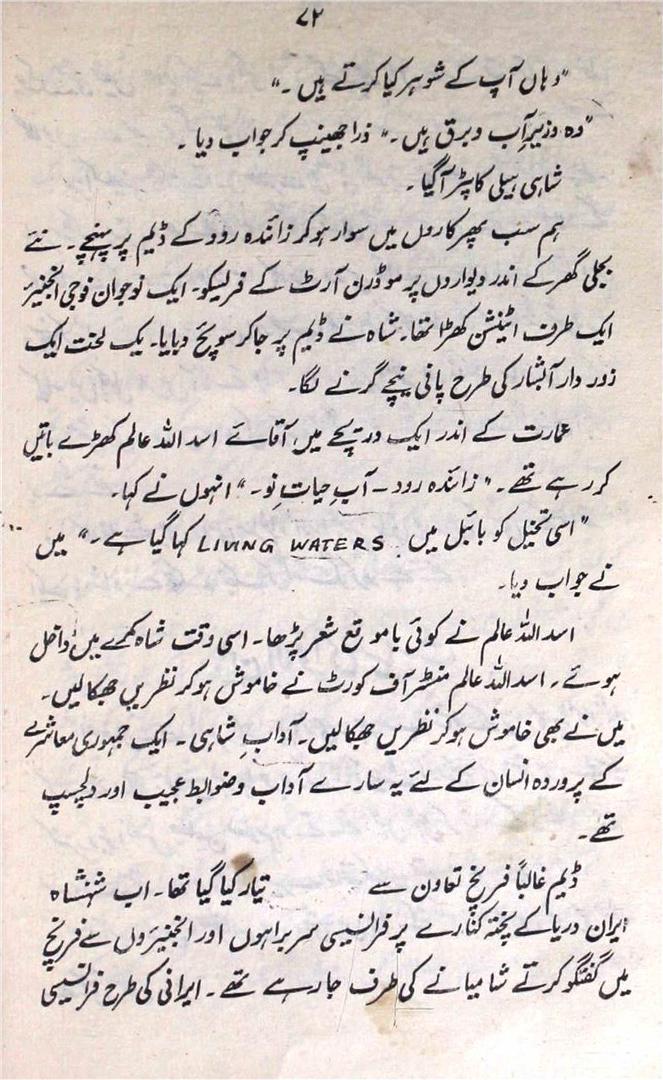 ۷۲
"وہاں آپ کے شوہر کیا کرتے ہیں۔"
"وہ وزیرِ آب و برق ہیں۔" ذرا جھینپ کر جواب دیا۔
شاہی ہیلی کاپٹر آگیا۔
ہم سب پھر کاروں میں سوار ہو کر زائندہ رود کے ڈیم پر پہنچے۔ نئے
بجلی گھر کے اندر دیواروں پر موڈرن آرٹ کے فریسکو۔ ایک نوجوان فوجی انجنیئر
ایک طرف اٹینشن کھڑا تھا۔ شاہ نے ڈیم پر جا کر سوئچ دبایا۔ یک لخت ایک
زور دار آبشار کی طرح پانی نیچے گرنے لگا۔
عمارت کے اندر ایک دریچے میں آقائے اسد اللہ عالم کھڑے باتیں
کر رہے تھے۔ "زائندہ رود ـ آبِ حیاتِ نو۔" انہوں نے کہا۔
"اسی تخیل کو بائبل میں LIVING WATERS کہا گیا ہے۔" میں
نے جواب دیا۔
اسد اللہ عالم نے کوئی با موقع شعر پڑھا۔ اسی وقت شاہ کمرے میں داخل
ہوئے۔ اسد اللہ عالم منسٹر آف کورٹ نے خاموش ہو کر نظریں جھکا لیں۔
میں نے بھی خاموش ہو کر نظریں جھکا لیں۔ آدابِ شاہی۔ ایک جمہوری معاشرے
کے پروردہ انسان کے لئے یہ سارے آداب و ضوابط عجیب اور دلچسپ
تھے۔
ڈیم غالباً فرنچ تعاون سے تیار کیا گیا تھا۔ اب شہنشاہ
ایران دریا کے پختہ کنارے پر فرانسیسی سربراہوں اور انجنیئروں سے فرنچ
میں گفتگو کرتے شامیانے کی طرف جا رہے تھے۔ ایرانی کی طرح فرانسیسی